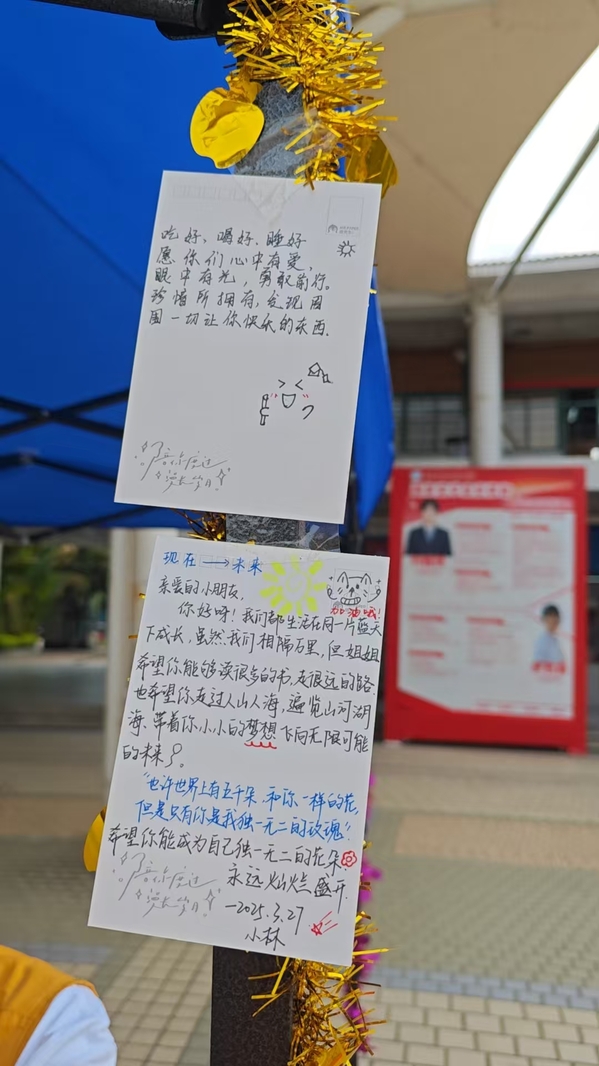 吃好、喝好、睡好
愿你们心中有爱，
眼中有光，勇敢前行。
珍惜所拥有，发现周
围一切让你快乐的东西.
陪你度过
漫长岁月
现在 → 未来
亲爱的小朋友，
加油哦！
你好呀！我们都生活在同一片蓝天
下成长，虽然我们相隔万里，但姐姐
希望你能够读很多的书，走很远的路
也希望你走过人山人海，遍览山河湖
海、带着你小小的梦想飞向无限可能
的未来。
“也许世界上有五千朵，和你一样的花，
但是只有你是我独一无二的玫瑰”
希望你能成为自己独一无二的花朵
永远灿烂盛开.
陪你度过
漫长岁月
—2025.3.27
小林